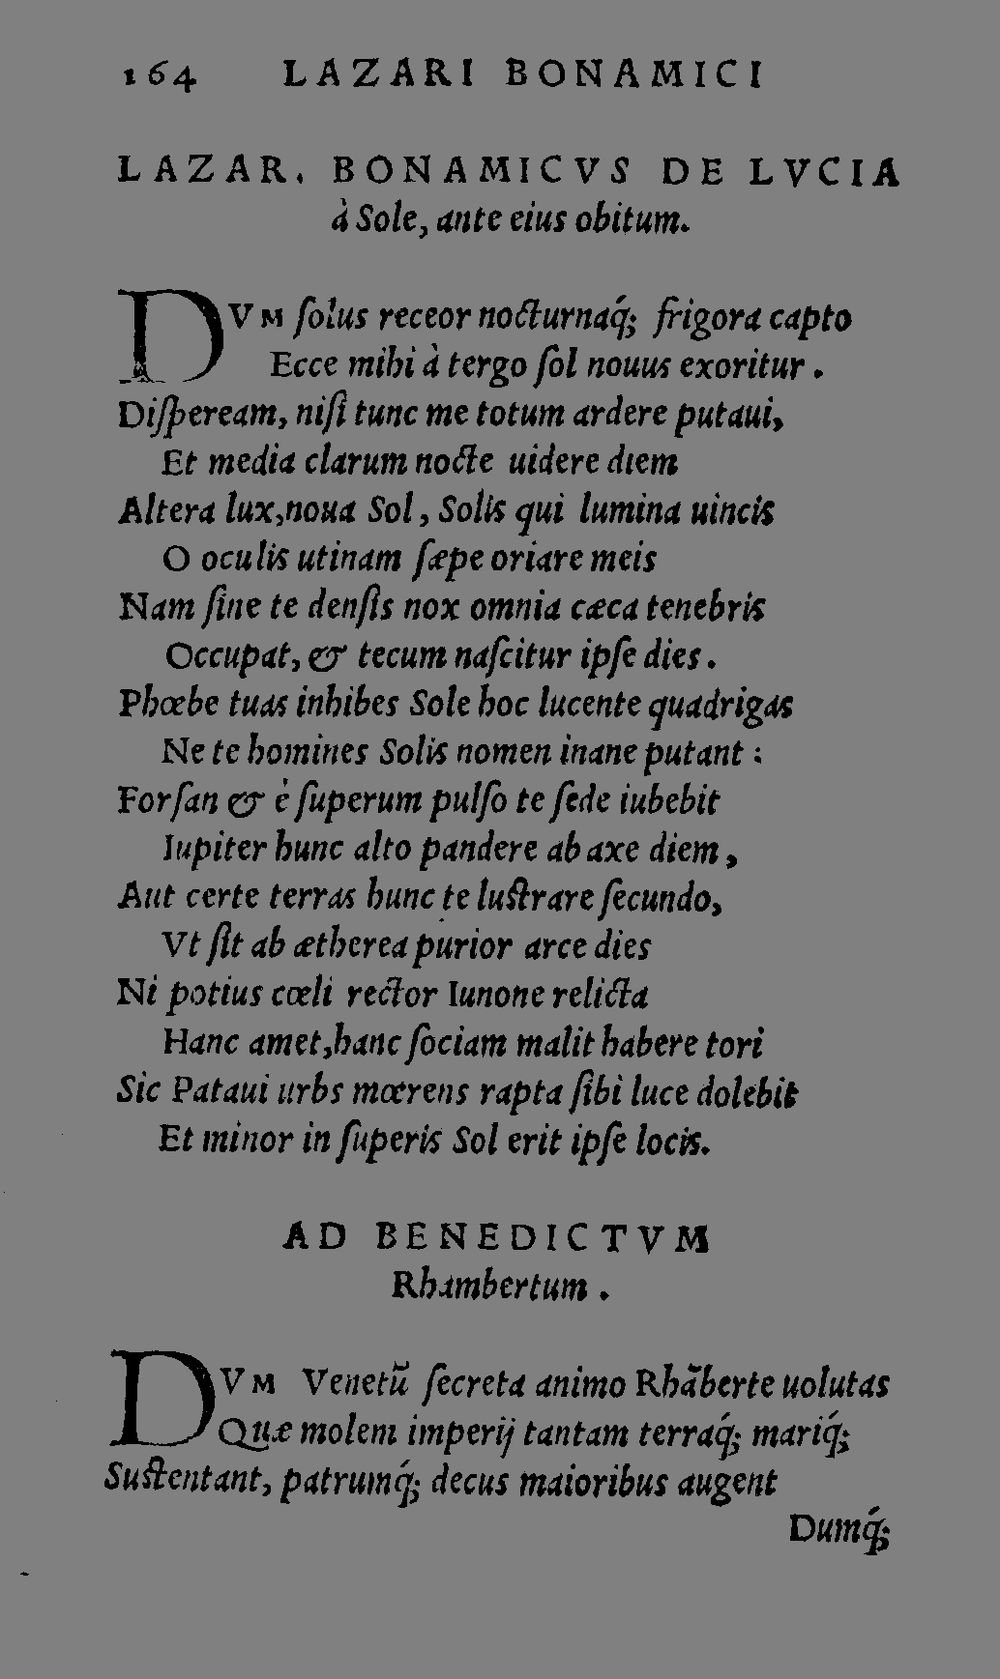 164 LAZARI BONAMICI
LAZAR. BONAMICVS DE LVCIA
à Sole, ante eius obitum.
DVM ſolus receor nocturnaq́; frigora capto
Ecce mihi à tergo ſol nouus exoritur.
Diſpeream, niſi tunc me totum ardere putaui,
Et media clarum nocte uidere diem
Altera lux, noua Sol, Solis qui lumina uincis
O oculis utinam ſæpe oriare meis
Nam ſine te denſis nox omnia cæca tenebris
Occupat, & tecum naſcitur ipſe dies.
Phœbe tuas inhibes Sole hoc lucente quadrigas
Ne te homines Solis nomen inane putant:
Forſan & è ſuperum pulſo te ſede iubebit
Iupiter hunc alto pandere ab axe diem,
Aut certe terras hunc te luſtrare ſecundo,
Vt ſit ab ætherea purior arce dies
Ni potius cœli rector Iunone relicta
Hanc amet, hanc ſociam malit habere tori
Sic Pataui urbs mœrens rapta ſibi luce dolebit
Et minor in ſuperis Sol erit ipſe locis.
AD BENEDICTVM
Rhambertum.
DVM Venetũ ſecreta animo Rhãberte uolutas
Quæ molem imperij tantam terraq́; mariq́;
Suſtentant, patrumq́; decus maioribus augent
Dumq́;